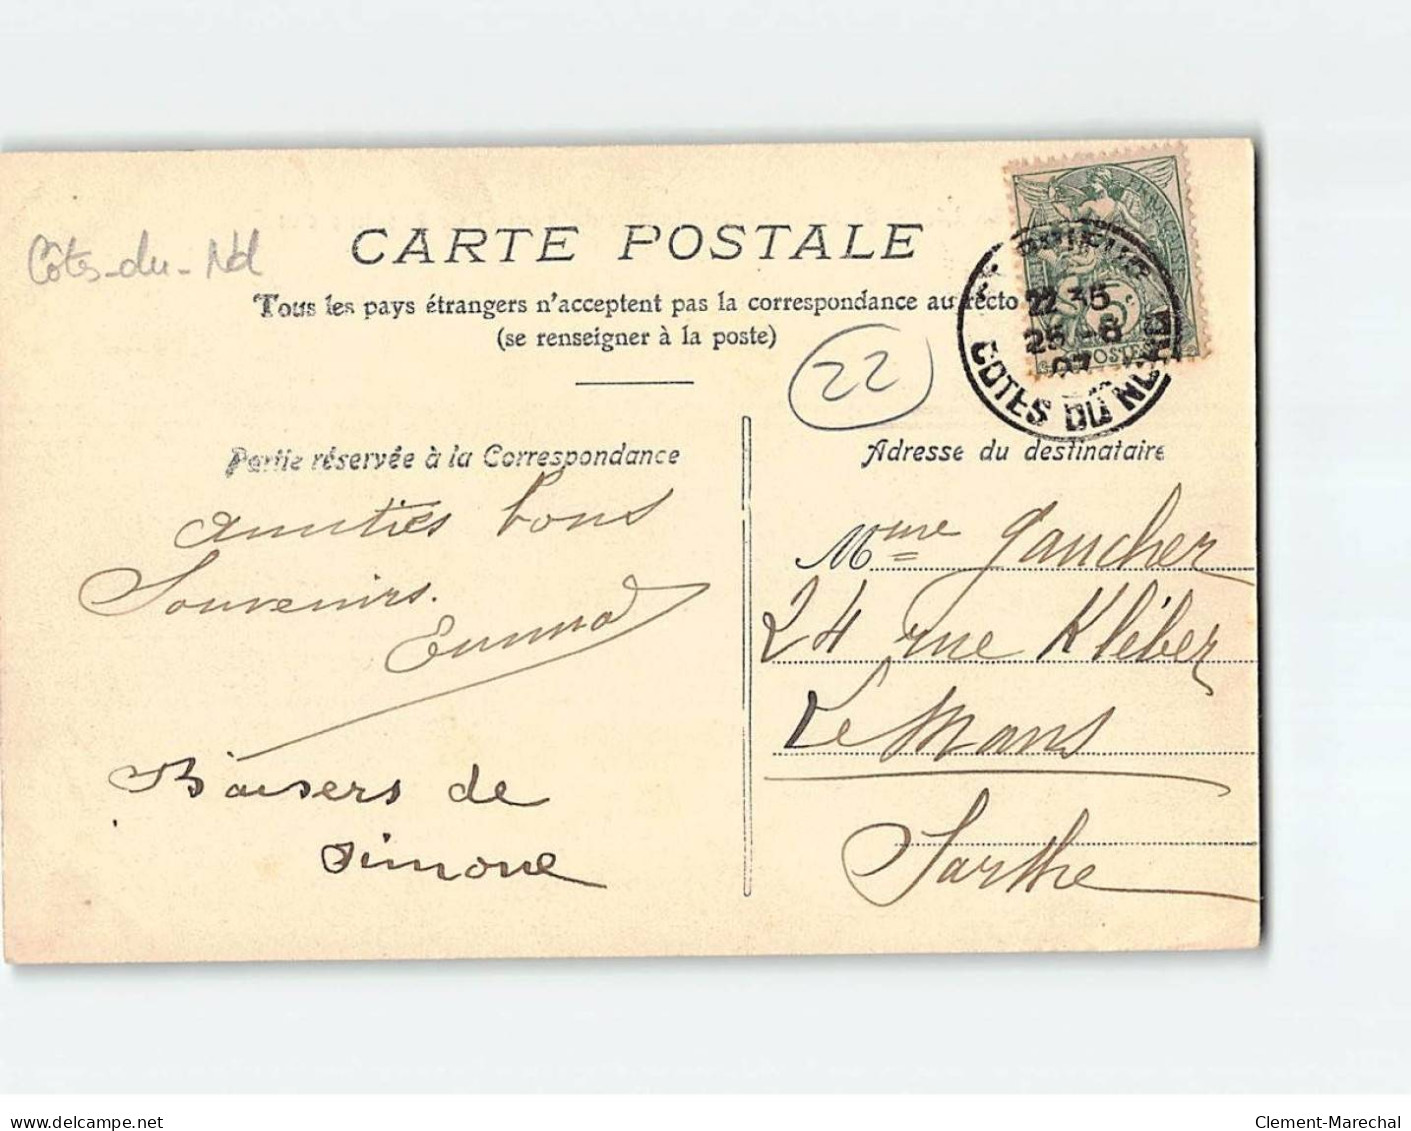 Côtes-du-Nd
CARTE POSTALE
Tous les pays étrangers n'acceptent pas la correspondance au recto
(se renseigner à la poste)
22
22 35
25 -8
07
COTES DU NORD
5c
POSTES
Partie réservée à la Correspondance
Amitiés bons
Souvenirs.
Emma
Baisers de
Simone
Adresse du destinataire
Mme Gaucher
24 rue Kléber
Le Mans
Sarthe
delcampe.net
Clement-Marechal